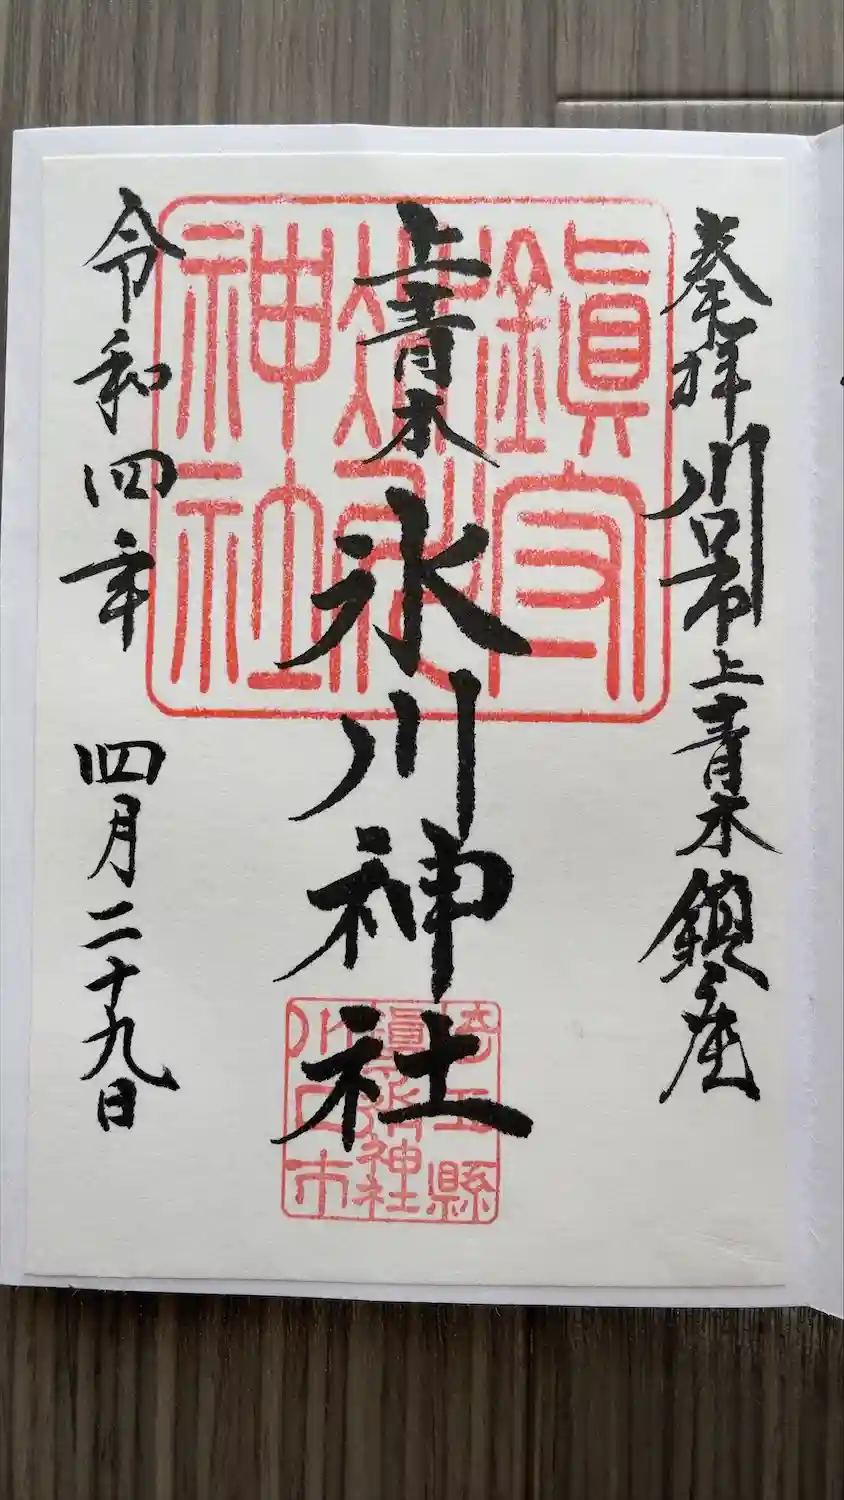 奉拝 川口市上青木鎮座
上青木 氷川神社
令和四年 四月二十九日
鎮守
神社
埼玉縣
神社
川口市